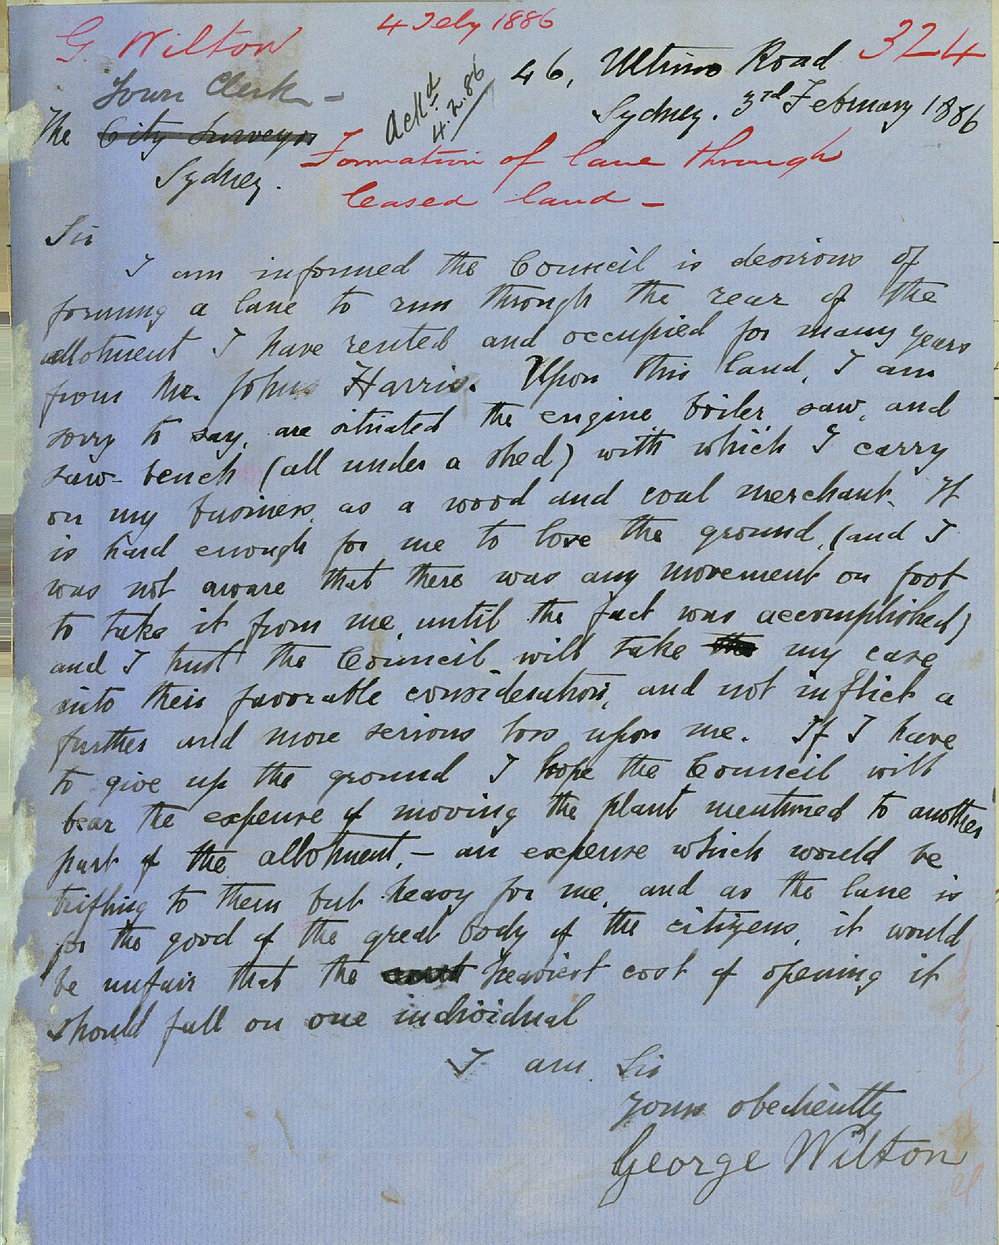 G. Wilton
4 Feby 1886
324
46, Ultimo Road
Town Clerk -
Ackd
4.2.86
Sydney. 3rd February 1886
The City Surveyor
Sydney.
Formation of lane through
leased land -
Sir
I am informed the Council is desirous of
forming a lane to run through the rear of the
allotment I have rented and occupied for many years
from Mr. John Harris. Upon this land, I am
sorry to say, are situated the engine boiler saw, and
saw-bench (all under a shed) with which I carry
on my business as a wood and coal merchant. It
is hard enough for me to lose the ground, (and I
was not aware that there was any movement on foot
to take it from me, until the fact was accomplished)
and I trust the Council will take the my case
into their favorable consideration, and not inflict a
further and more serious loss upon me. If I have
to give up the ground I hope the Council will
bear the expense of moving the plant mentioned to another
part of the allotment, - an expense which would be
trifling to them but heavy for me, and as the lane is
for the good of the great body of the citizens, it would
be unfair that the heaviest cost of opening it
should fall on one individual
I am. Sir
yours obediently
George Wilton